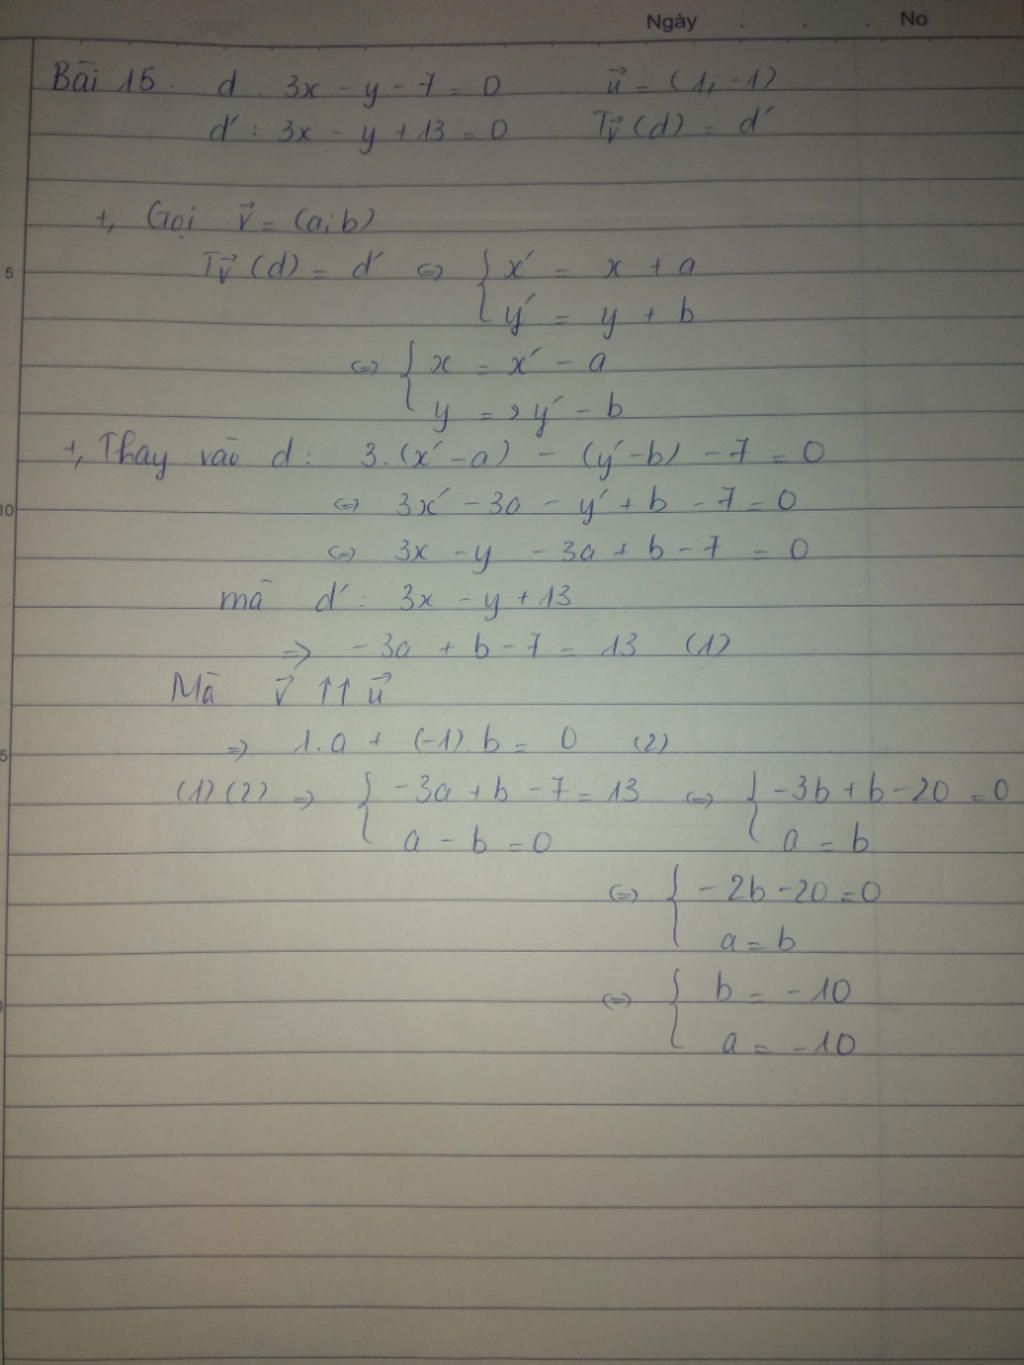 Ngày . . . No
Bài 15. d 3x - y - 7 = 0 u⃗ = (1; -1)
d' : 3x - y + 13 = 0 Tv⃗ (d) = d'
+, Gọi v⃗ = (a; b)
Tv⃗ (d) = d' ⇔ { x' = x + a
y' = y + b
⇔ { x = x' - a
y = y' - b
5
+, Thay vào d : 3.(x' - a) - (y' - b) - 7 = 0
⇔ 3x' - 3a - y' + b - 7 = 0
10
⇔ 3x - y - 3a + b - 7 = 0
mà d' : 3x - y + 13
⇒ -3a + b - 7 = 13 (1)
Mà v⃗ ↑↑ u⃗
⇒ 1.a + (-1).b = 0 (2)
5
(1)(2) ⇒ { -3a + b - 7 = 13 ⇔ { -3b + b - 20 = 0
a - b = 0 a = b
⇔ { -2b - 20 = 0
a = b
⇔ { b = -10
a = -10